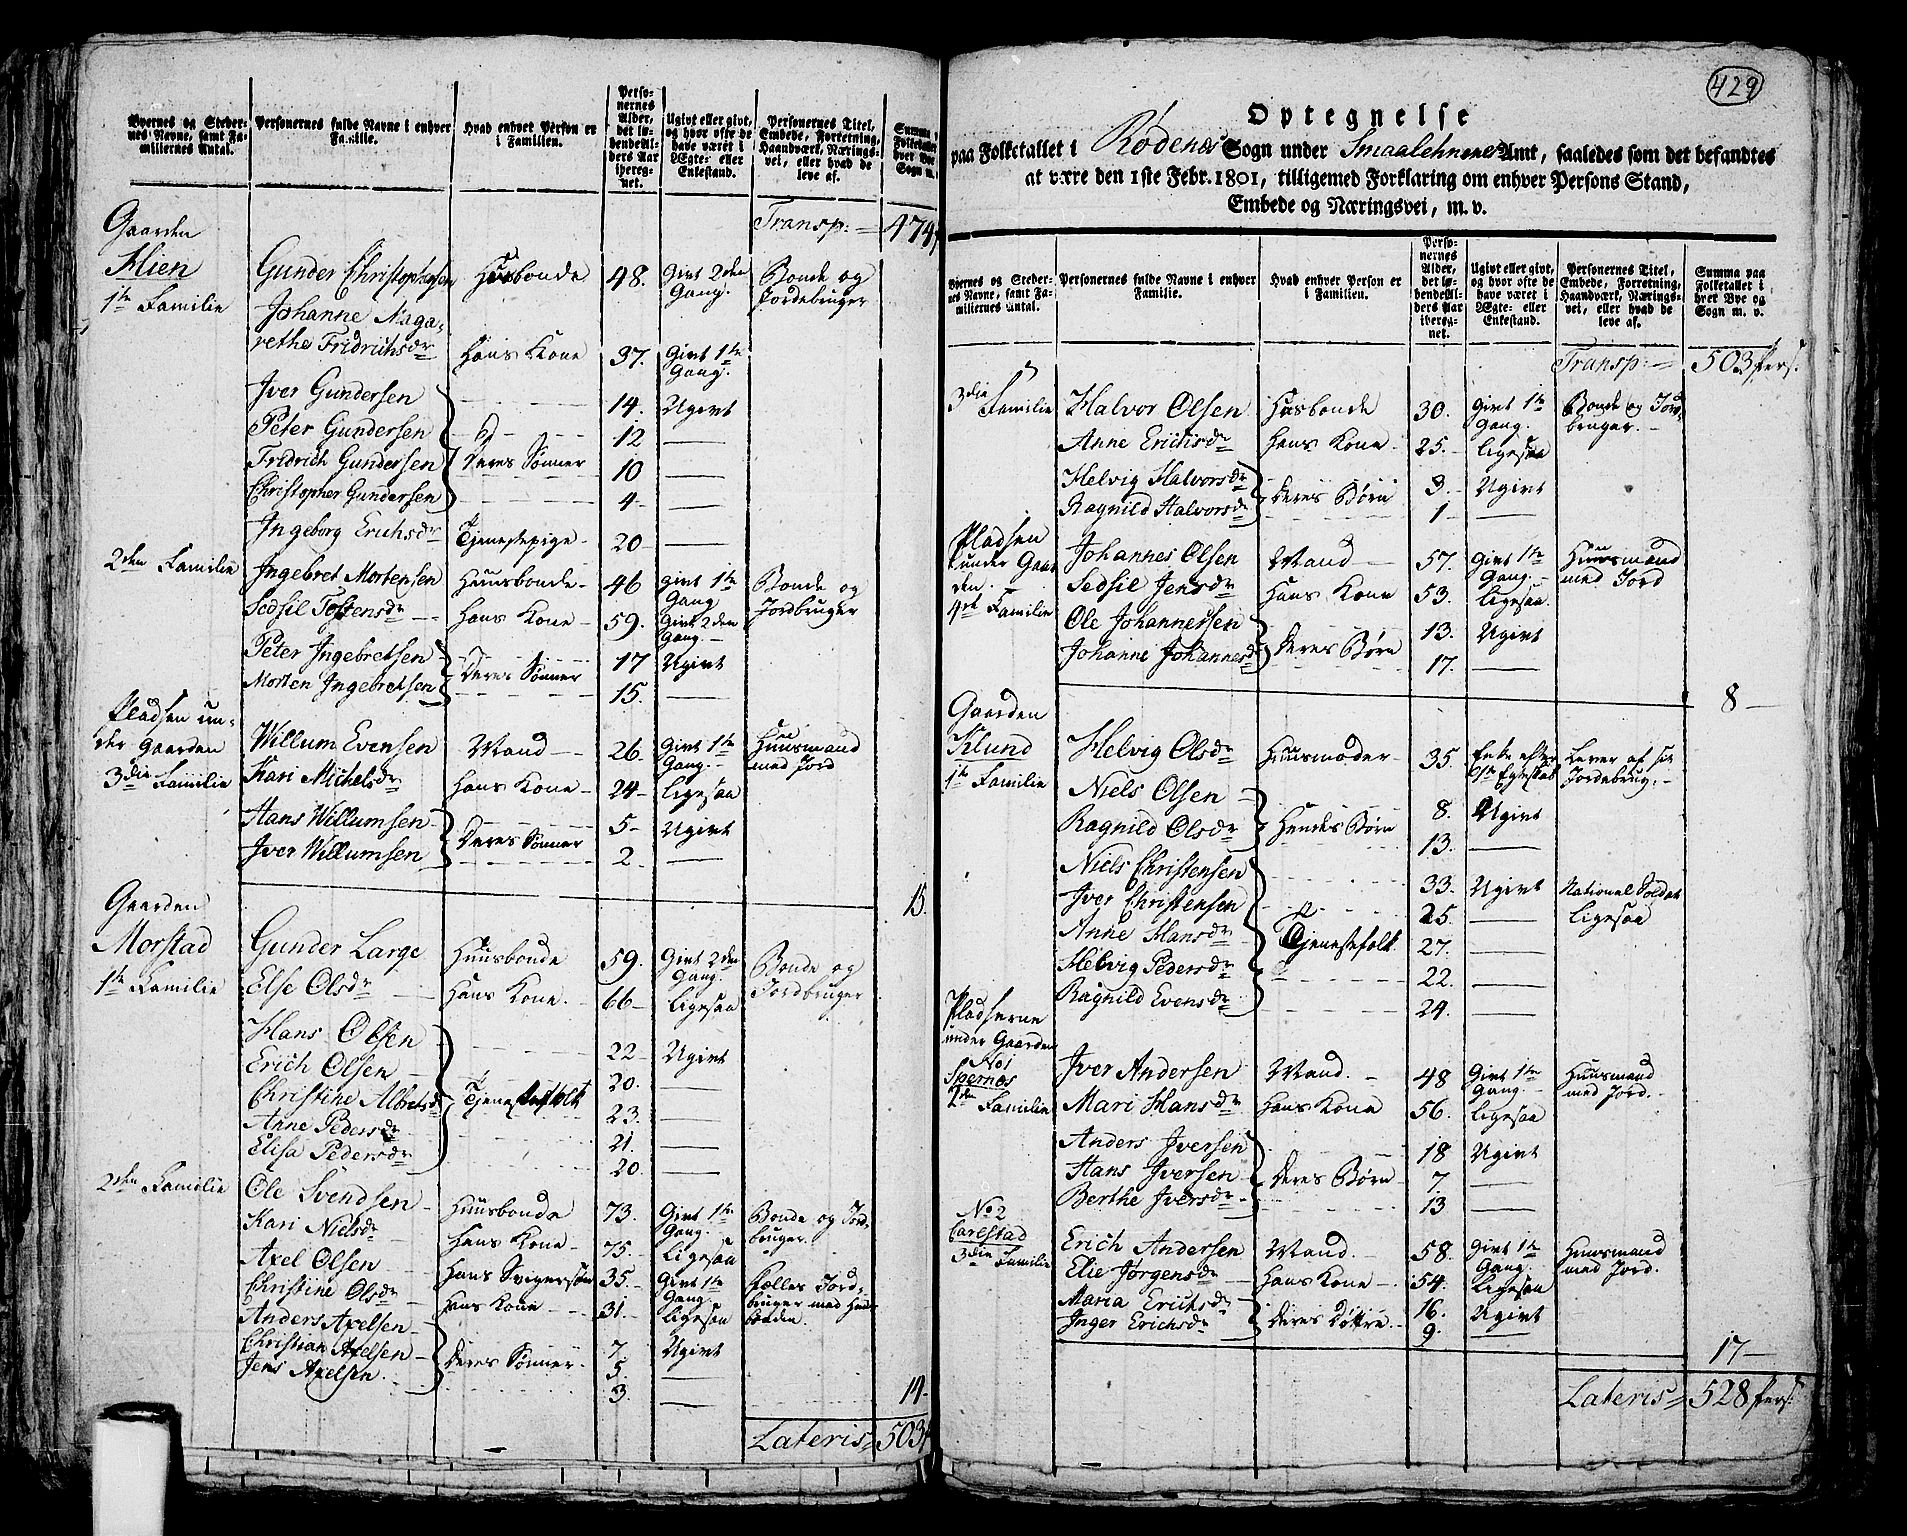 Byernes og Stedernes Navne, samt Familiernes Antal. | Personernes fulde Navne i enhver Familie. | Hvad enhver Person er i Familien. | Personernes Alder, det løbende Alders Aar iberegnet. | Ugivt eller givt, og hvor ofte de have været i Ægte- eller Enkestand. | Personernes Titel, Embede, Forretning, Haandværk, Næringsvei, eller hvad de leve af.
Transp: 474
Gaarden
Klien
1te Familie | Gunder Christophersen | Huusbonde | 48. | Givt 2den Gang. | Bonde og Jordebruger
Johanne Magarethe Fridrichsdr | Hans Kone | 37. | Givt 1te Gang.
Iver Gundersen | 14. | Ugivt
Peter Gundersen | 12 | —
Fridrich Gundersen | Deres Sønner | 10 | —
Christopher Gundersen | 4 | —
Ingeborg Erichsdr | Tjenestepige | 20 | —
2den Familie | Ingebret Mortensen | Huusbonde | 46 | Givt 1te Gang | Bonde og Jordbruger
Sedsil Tostensdr | Hans Kone | 59. | Givt 2den Gang.
Peter Ingebretsen | 17 | Ugivt
Morten Ingebretsen | Deres Sønner | 15. | —
Pladsen under Gaarden
3die Familie | Willum Evensen | Mand | 26 | Givt 1te Gang. | Huusmand med Jord
Kari Michelsdr | Hans Kone | 24 | Ligesaa
Hans Willumsen | 5 | Ugivt
Iver Willumsen | Deres Sønner | 2 | —
15.
Gaarden
Morstad
1te Familie | Gunder Large | Huusbonde | 59. | Givt 2den Gang. | Bonde og Jordbruger
Else Olsdr | Hans Kone. | 66 | Ligesaa
Hans Olsen | 22 | Ugivt
Erich Olsen | 20. | —
Christine Albretsdr | Tjenestefolk | 23. | —
Anne Pedersdr | 21. | —
Elisa Pedersdr | 20. | —
2den Familie | Ole Svendsen | Huusbonde | 73. | Givt 1te Gang. | Bonde og Jordbruger.
Kari Nielsdr | Hans Kone | 75. | Ligesaa
Axel Olsen | Hans Svigersøn | 35. | Givt 1te Gang. | Fælles Jordbruger med Huusbonden.
Christine Olsdr | Hans Kone | 31. | Ligesaa
Anders Axelsen | 7. | Ugivt
Christian Axelsen | Deres Sønner | 5. | —
Jens Axelsen | 3. | —
14
Lateris 503
429
Optegnelse
paa Folketallet i Rødenæs Sogn under Smaalehnenes Amt, saaledes som det befandtes
at være den 1ste Febr. 1801, tilligemed Forklaring om enhver Persons Stand,
Embede og Næringsvei, m. v.
Byernes og Stedernes Navne, samt Familiernes Antal. | Personernes fulde Navne i enhver Familie. | Hvad enhver Person er i Familien. | Personernes Alder, det løbende Alders Aar iberegnet. | Ugivt eller givt, og hvor ofte de have været i Ægte- eller Enkestand. | Personernes Titel, Embede, Forretning, Haandværk, Næringsvei, eller hvad de leve af. | Summa paa Folketallet i hver Bye og Sogn m. v.
Transp: 503 Pers:
3die Familie | Halvor Olsen | Husbonde | 30. | Givt 1te Gang. | Bonde og Jordbruger.
Anne Erichsdr | Hans Kone | 25. | Ligesaa
Helvig Halvorsdr | 3. | Ugivt
Ragnild Halvorsdr | Deres Børn | 1 | —
Pladsen under Gaarden.
4de Familie | Johannes Olsen | Mand | 57. | Givt 1te Gang. | Huusmand med Jord
Sedsil Jensdr | Hans Kone | 53. | Ligesaa.
Ole Johannessen | 13. | Ugivt
Johanne Johannesdr | Deres Børn | 17. | —
8
Gaarden
Klund
1te Familie | Helvig Olsdr | Huusmoder | 35. | Enke efter 1te Egteskab | Lever af sit Jordebrug.
Niels Olsen | 8. | Ugivt
Ragnild Olsdr | Hendes Børn | 13. | —
Niels Christensen | 33. | Ugivt | National Soldat
Iver Christensen | 25. | — | Ligesaa
Anne Hansdr | Tjenestefolk | 27. | —
Helvig Pedersdr | 22. | —
Ragnild Evensdr | 24. | —
Pladserne under Gaarden
No1
Spernæs
2den Familie | Iver Andersen | Mand. | 48 | Givt 1te Gang | Huusmand med Jord.
Mari Hansdr | Hans Kone | 56. | Ligesaa
Anders Iversen | 18 | Ugivt
Hans Iversen | Deres Børn | 7 | —
Berthe Iversdr | 13 | —
No 2
Carlstad
3die Familie | Erich Andersen | Mand. | 58. | Givt 1te Gang. | Huusmand med Jord.
Elie Jørgensdr | Hans Kone | 54. | Ligesaa
Maria Erichsdr | 16. | Ugivt
Inger Erichsdr | Deres Døttre | 9. | —
17
Lateris 528 Pers: